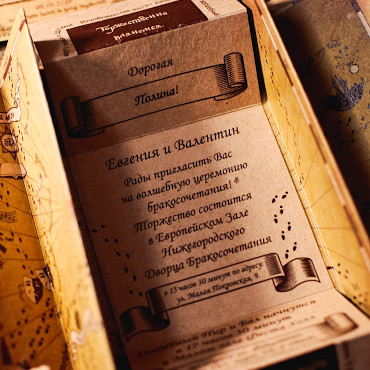 Торжественно
клянемся.
Дорогая
Полина!
Евгения и Валентин
Рады пригласить Вас
на волшебную церемонию
бракосочетания! *
Торжество состоится
в Европейском Зале
Нижегородского
Дворца Бракосочетания
в 15 часов 30 минут по адресу:
ул. Малая Покровская, 9.
Свадебный Пир и Бал начнутся
в 17 часов 30 минут